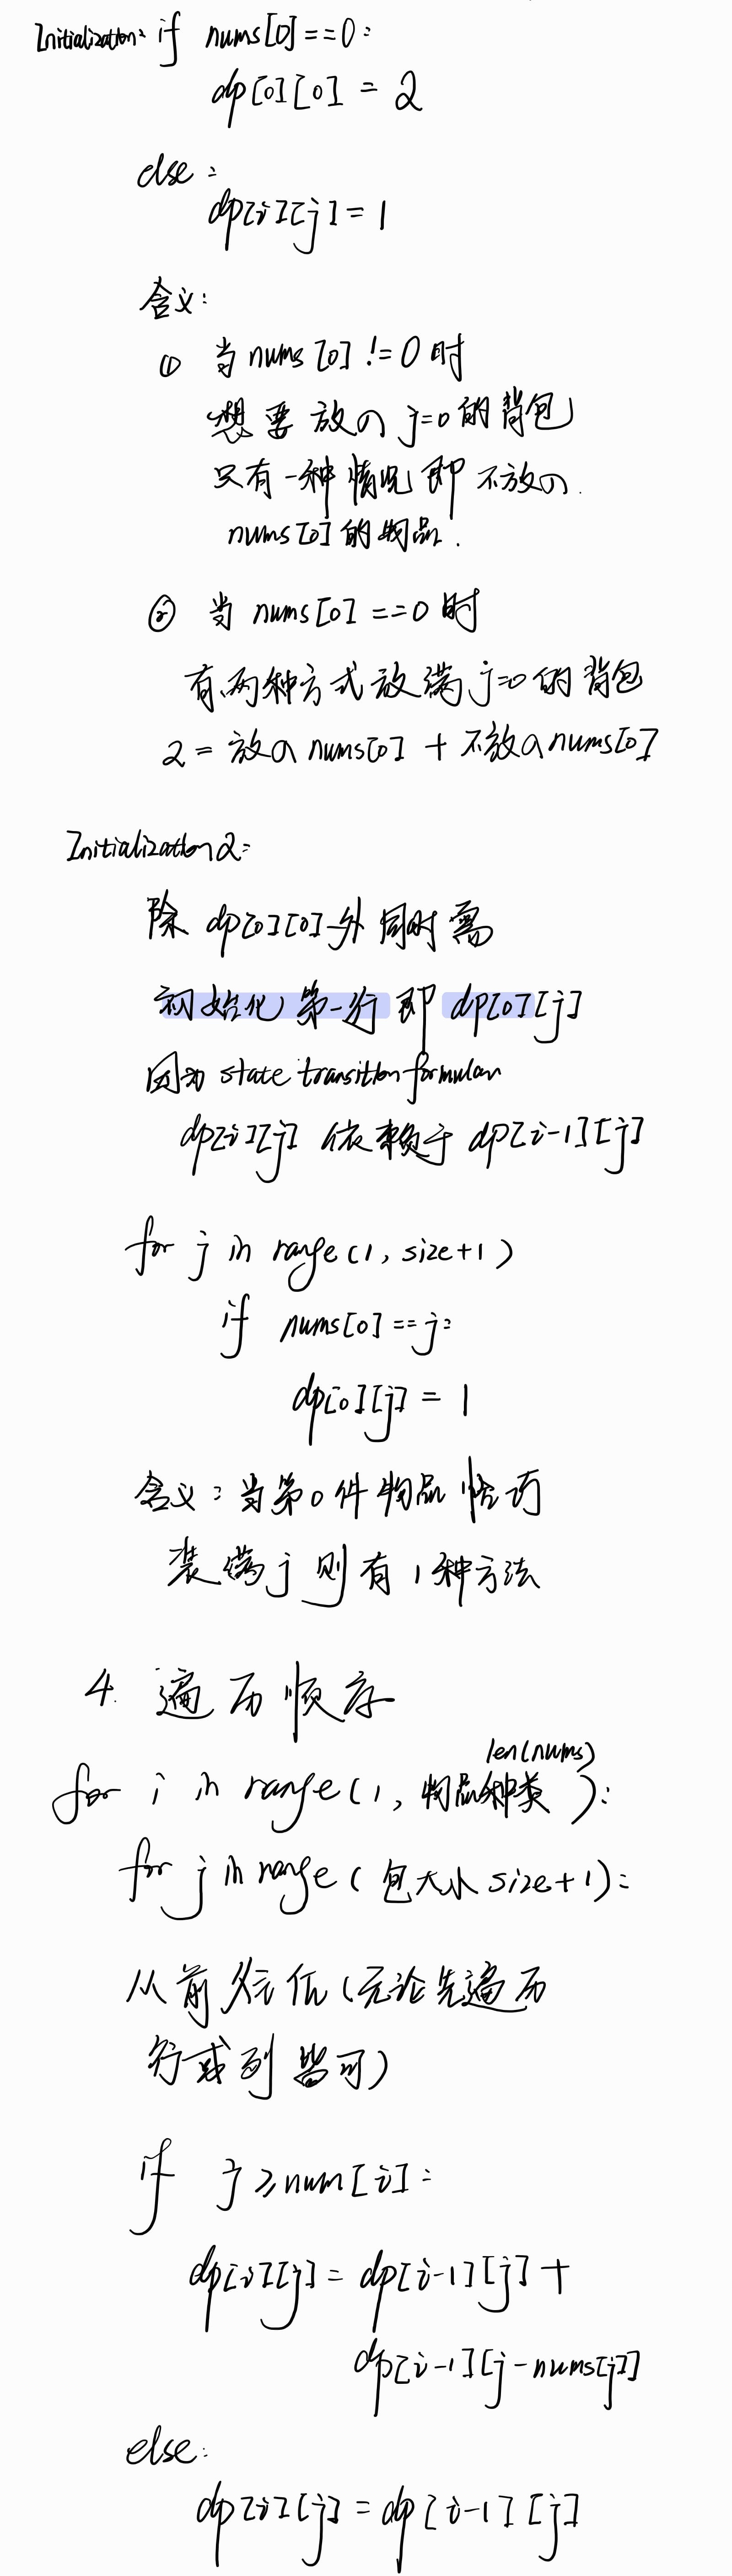 Initialization: if nums[0]==0:
dp[0][0] = 2
else:
dp[i][j] = 1
含义:
① 当 nums[0] != 0 时
想要放入 j=0 的背包
只有一种情况即不放入.
nums[0] 的物品.
② 当 nums[0] ==0 时
有两种方式放满 j=0 的背包
2 = 放入 nums[0] + 不放入 nums[0]
Initialization2:
除 dp[0][0] 外同时需
初始化第一行即 dp[0][j]
因为 state transition formulan
dp[i][j] 依赖于 dp[i-1][j]
for j in range(1, size+1)
if nums[0] == j:
dp[0][j] = 1
含义: 当第0件物品恰巧
装满 j 则有 1 种方法
4. 遍历顺序
len(nums)
for i in range(1, 物品种类):
for j in range(包大小 size+1):
从前往后(无论先遍历
行或列皆可)
if j ≥ num[i]:
dp[i][j] = dp[i-1][j] +
dp[i-1][j-nums[j]]
else:
dp[i][j] = dp[i-1][j]